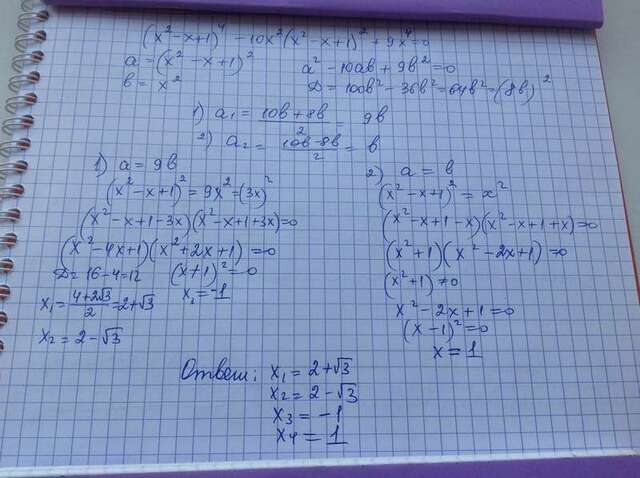 (x²-x+1)⁴ - 10x²(x²-x+1)² + 9x⁴=0
a=(x²-x+1)²
в = x²
a²-10aв+9в²=0
D= 100в²-36в²=64в²=(8в)²
1) a₁ = (10в+8в)/2 = 9в
2) a₂ = (10в-8в)/2 = в
1) a=9в
(x²-x+1)²=9x²=(3x)²
(x²-x+1-3x)(x²-x+1+3x)=0
(x²-4x+1)(x²+2x+1)=0
D=16-4=12
(x+1)²=0
x₁=(4+2√3)/2=2+√3
x₂ = 2-√3
x₁=-1
2) a=в
(x²-x+1)²=x²
(x²-x+1-x)(x²-x+1+x)=0
(x²+1)(x²-2x+1)=0
(x²+1)≠0
x²-2x+1=0
(x-1)²=0
x=1
Ответ: x₁=2+√3
x₂=2-√3
x₃=-1
x₄=1